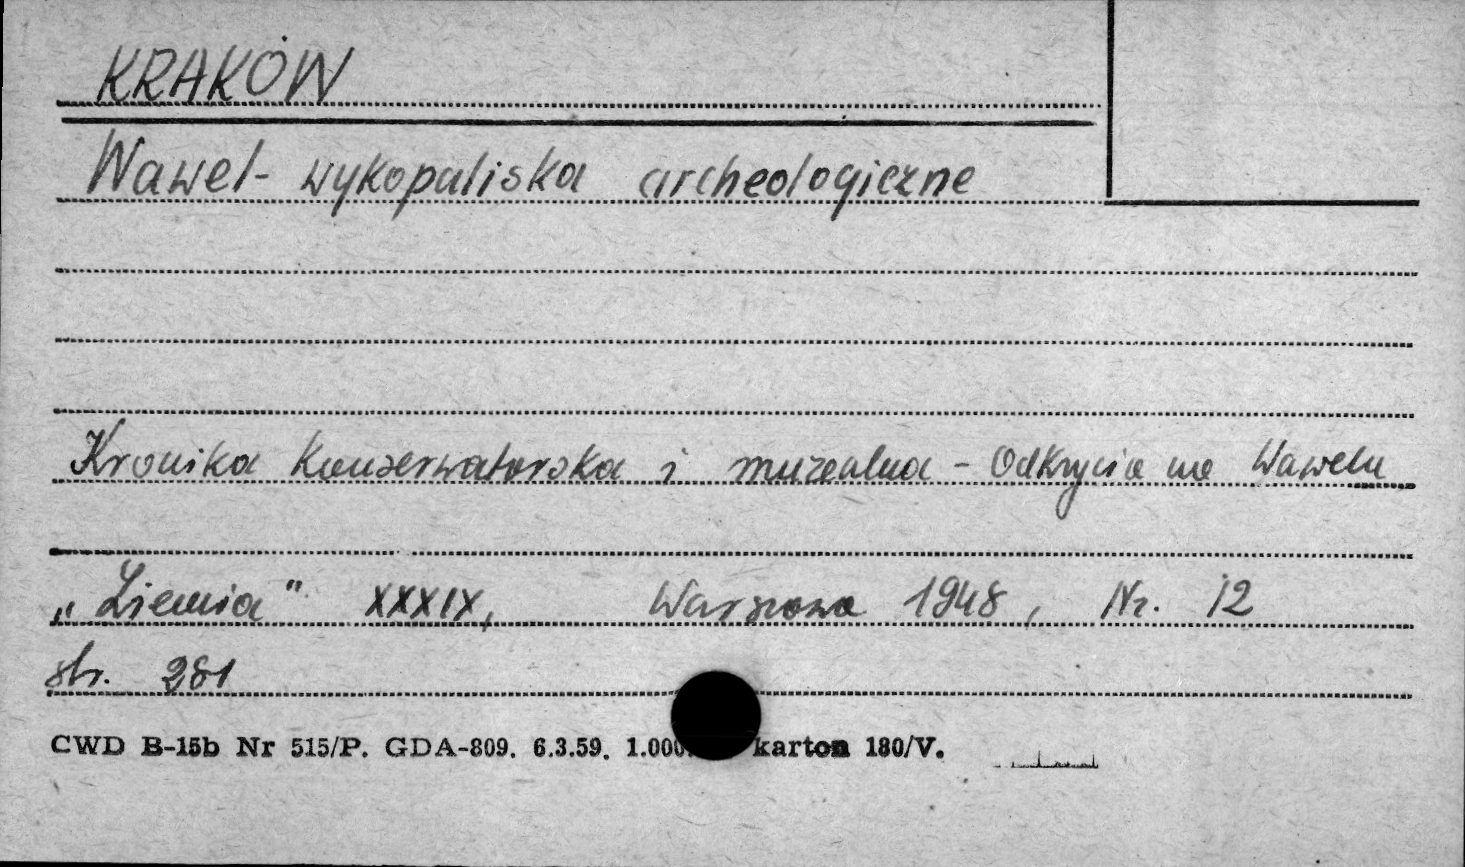 KRAKÓW
Wawel- wykopaliska archeologiczne
Kronika konserwatorska i muzealna - Odkrycia na Wawelu
„Ziemia" XXXIX, Warszawa 1948, Nr. 12
str. 281
CWD B-15b Nr 515/P. GDA-809. 6.3.59. 1.000. karton 180/V.